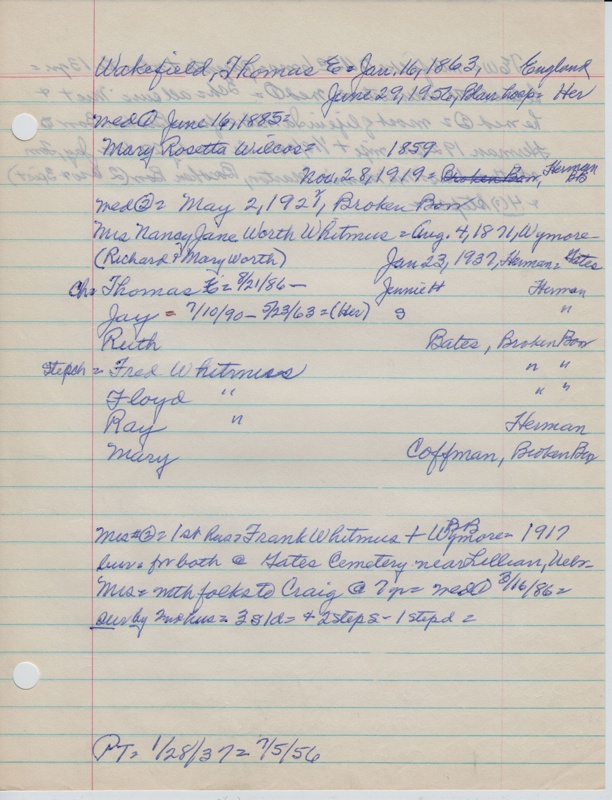 Wakefield, Thomas E = Jan. 16, 1863, England
June 29, 1956, Her
med① June 16, 1885 =
Mary Rosetta Wilcox = 1859
Nov. 28, 1919 = Broken Bow, Herman
med② = May 2, 1921, Broken Bow
Mrs Nancy Jane Worth Whitmus = Aug. 4, 1871, Wymore -
(Richard + Mary Worth) Jan 23, 1937, Herman = Gates
Ch = Thomas E = 8/21/86 - Jennie H Herman
Jay = 7/10/90 - 5/23/63 = (Her) S "
Ruth Bates, Broken Bow
Stepch = Fred Whitmus " "
Floyd " " "
Ray " Herman
Mary Coffman, Broken Bow
Mrs #② = 1st hus = Frank Whitmus + BB Wymore - 1917
for both @ Gates Cemetery near Lillian, Nebr -
Mrs = folks to Craig @ 7 yr = med① 3/16/86 =
Surv by hus = 2s 1d = + 2 steps - 1 stepd =
PT = 1/28/37 = 7/5/56